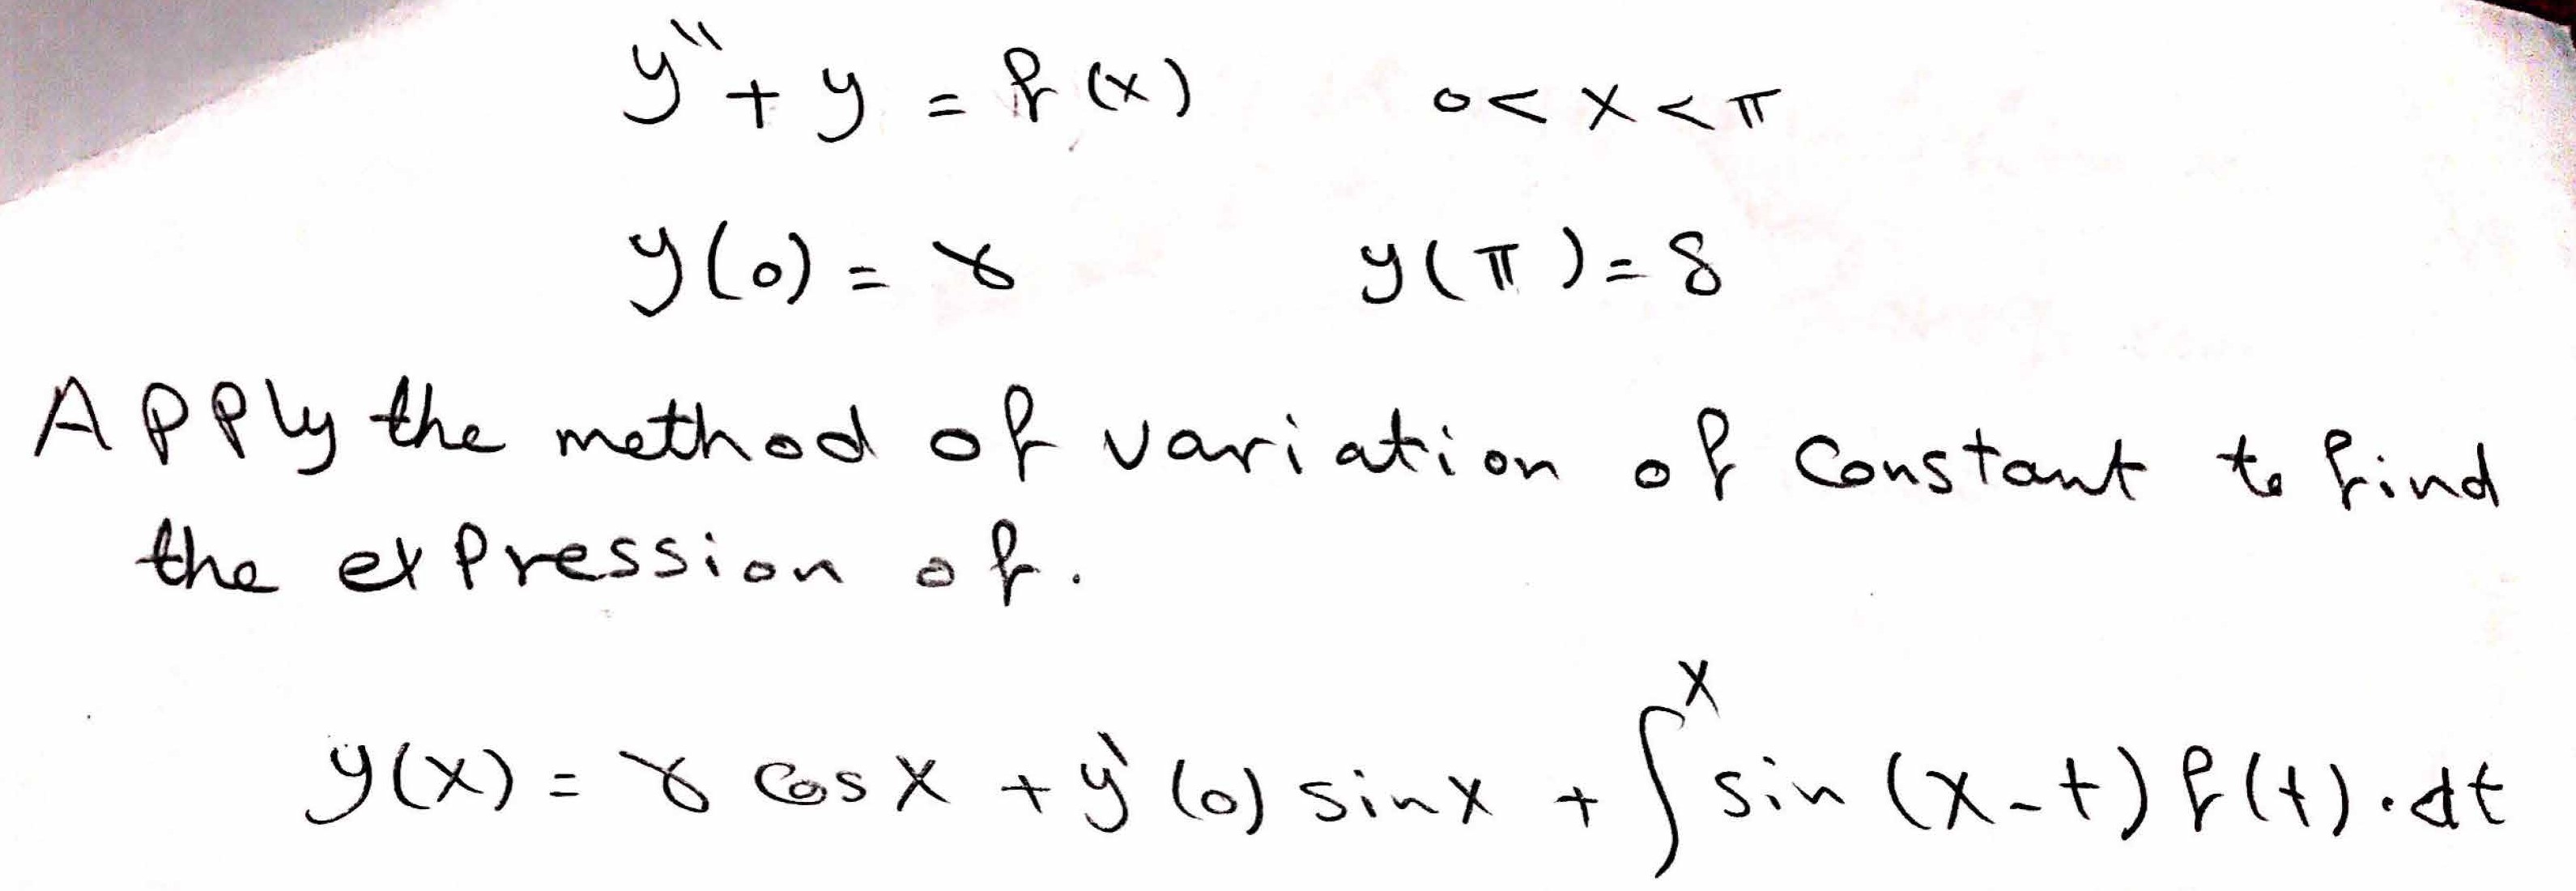 y'' + y = f(x) 0 < x < π
y(0) = γ y(π) = δ
Apply the method of variation of constant to find
the expression of.
y(x) = γ cos x + y'(0) sin x + ∫^x sin (x - t) f(t) . dt